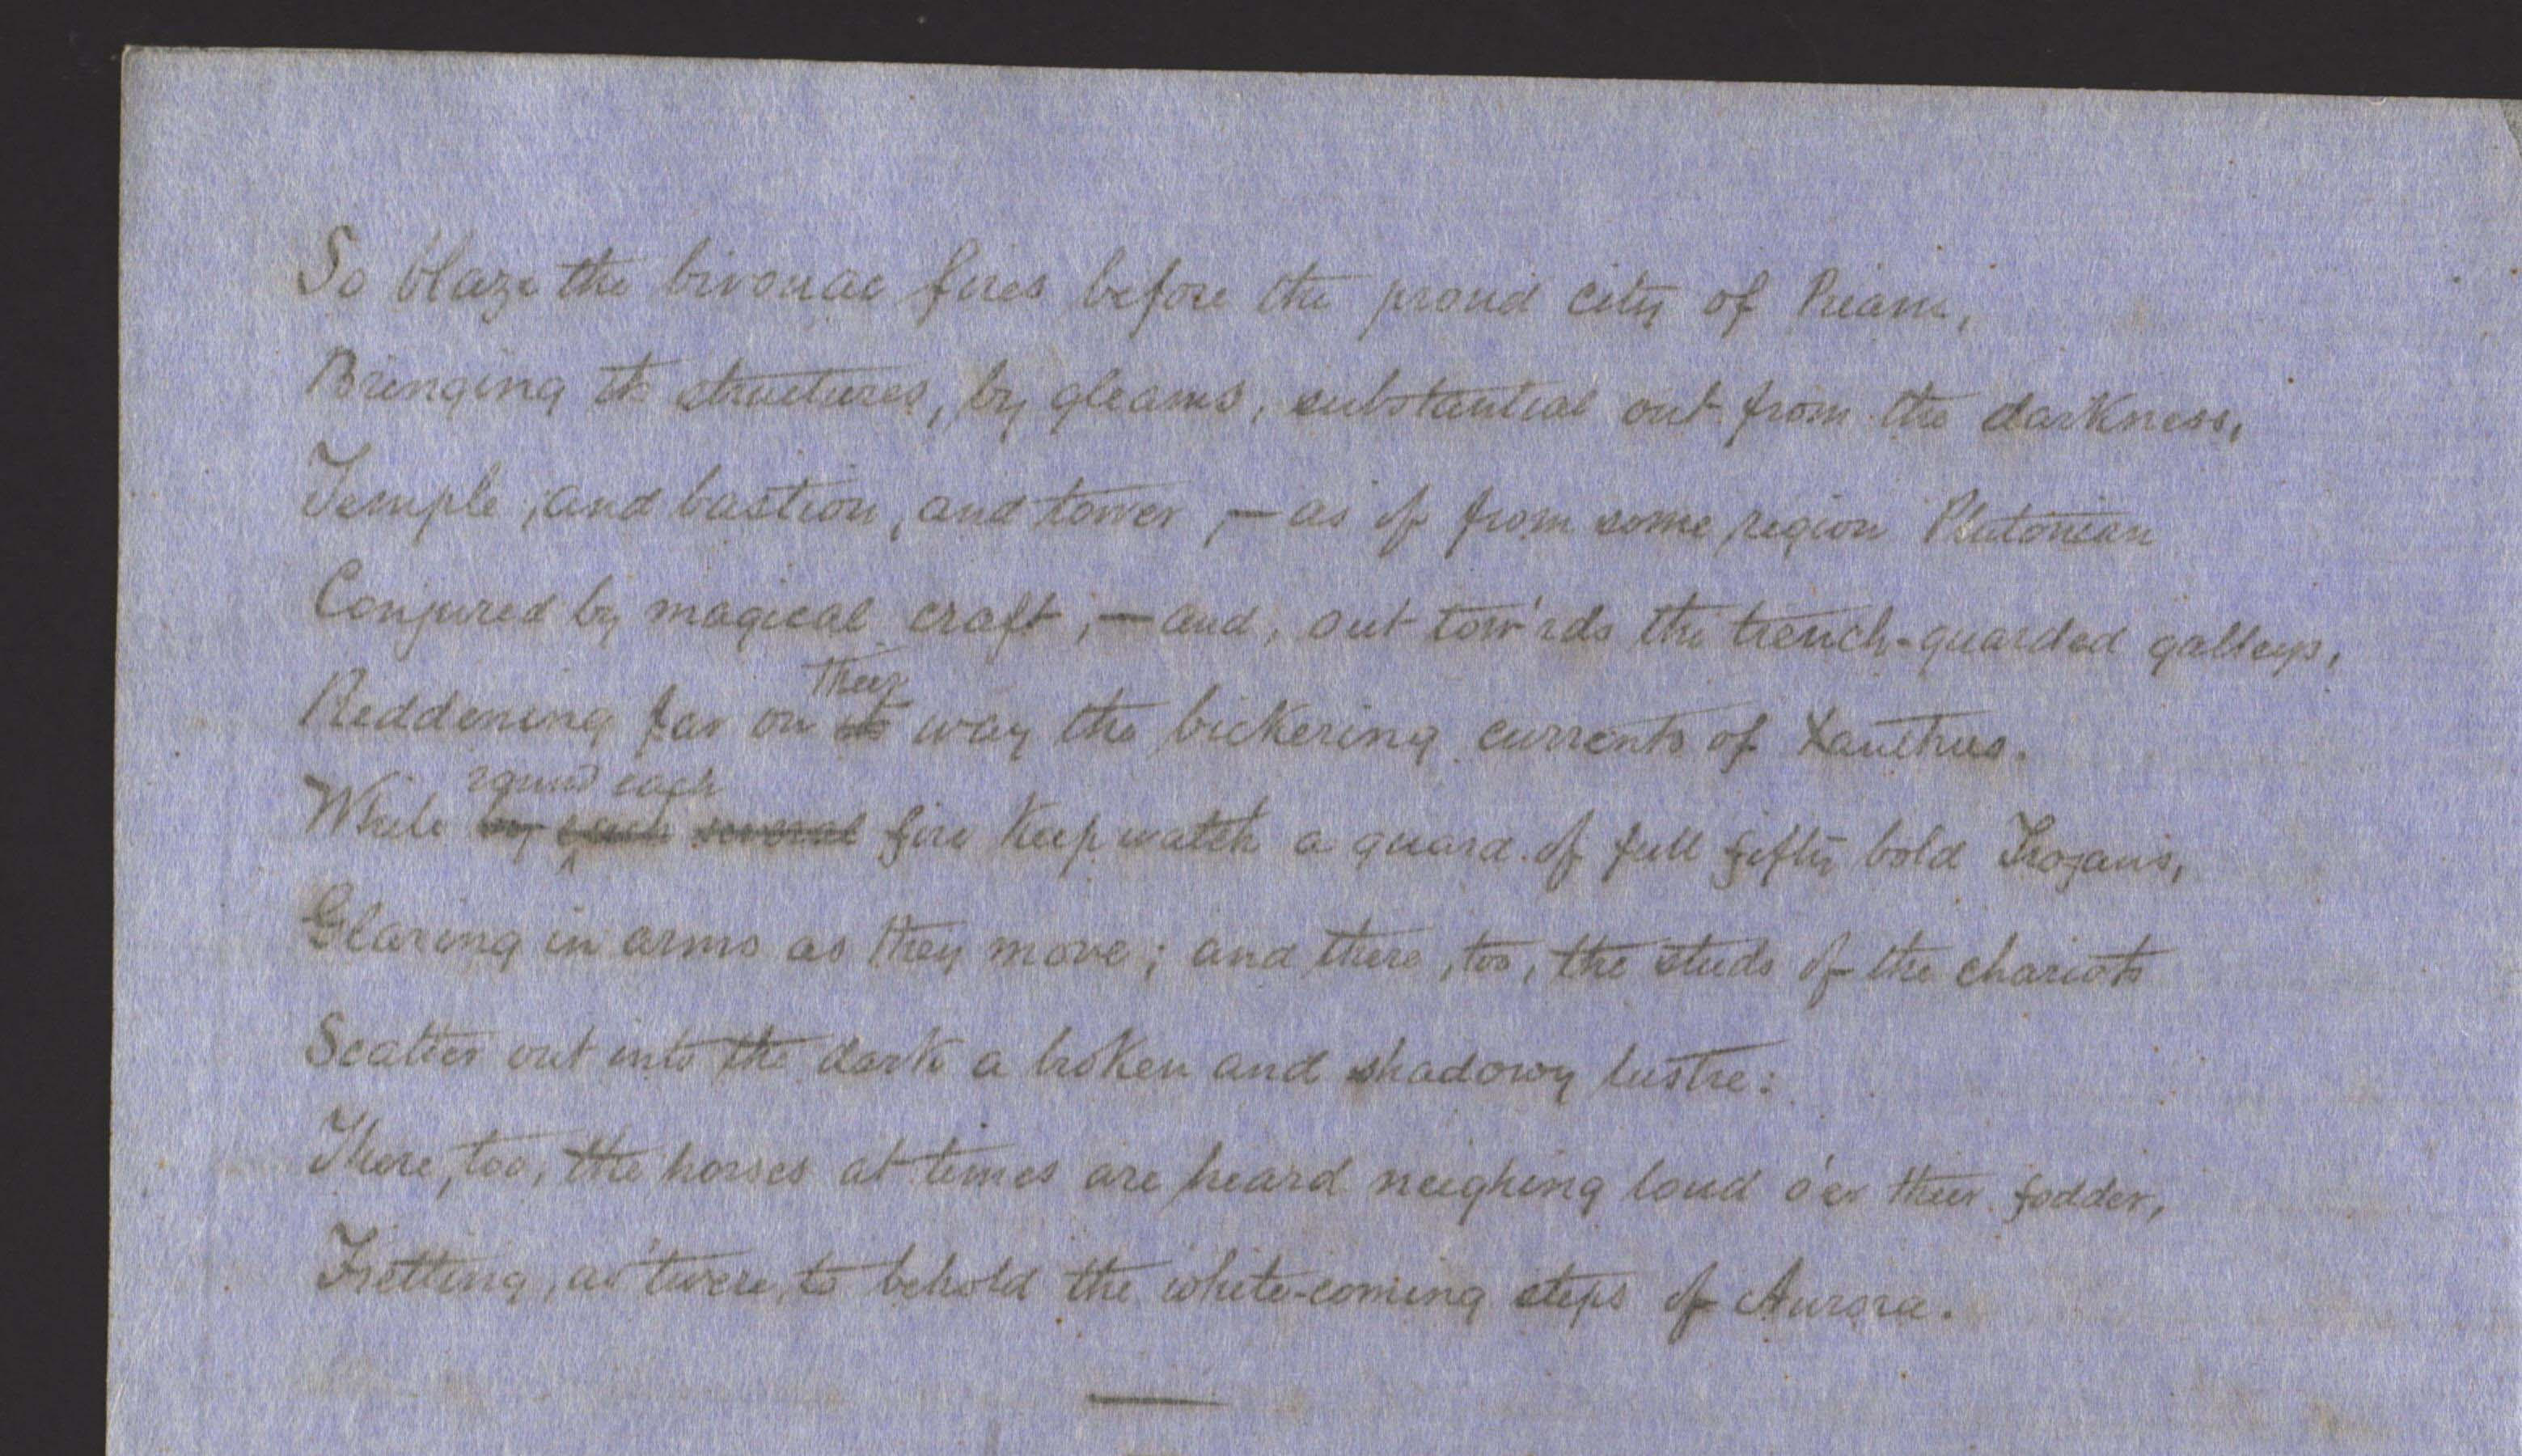 So blaze the bivouac fires before the proud city of Priam,
Bringing its structures, by gleams, substantial out from the darkness,
Temple, and bastion, and tower, — as if from some region Plutonian
Conjured by magical craft, — and, out tow'rds the trench-guarded galleys,
their
Reddening far on its way the bickering currents of Xanthus.
round each
While by each several fire keep watch a guard of full fifty bold Trojans,
Glaring in arms as they move; and there, too, the studs of the chariots
Scatter out into the dark a broken and shadowy lustre:
There, too, the horses at times are heard neighing loud o'er their fodder,
Fretting, as 'twere, to behold the white-coming steps of Aurora.